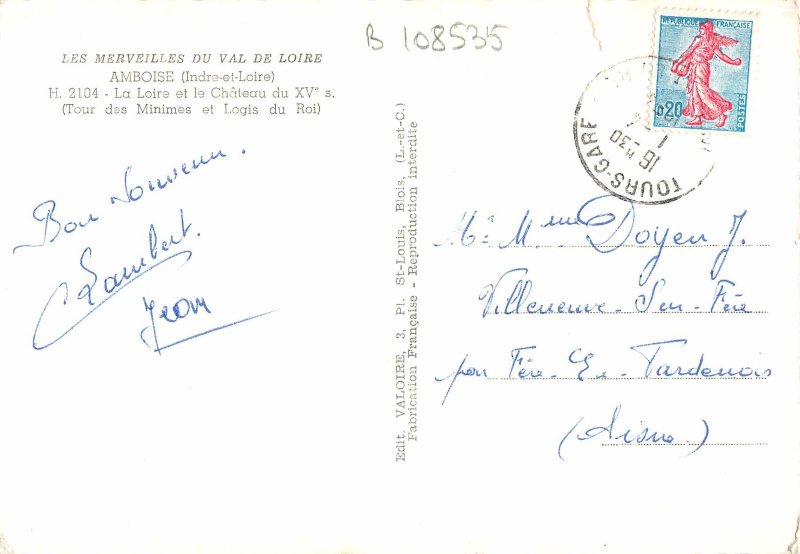 B 108535
LES MERVEILLES DU VAL DE LOIRE
AMBOISE (Indre-et-Loire)
H. 2104 - La Loire et le Château du XVe s.
(Tour des Minimes et Logis du Roi)
Bon Souvenir.
Lambert.
Jean
Edit. VALOIRE, 3, Pl. St-Louis, Blois, (L.-et-C.)
Fabrication Française - Reproduction interdite
REPUBLIQUE FRANÇAISE
0,20
POSTES
TOURS-GARE
16 H 30
1
Mr Mme Doyen J.
Villeneuve-Sur-Fère
par Fère-En-Tardenois
(Aisne)